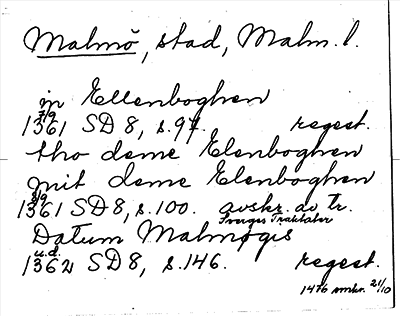 Malmö, stad, Malm. l.
in Ellenboghen
7/9
1361 SD 8, s. 97. regest.
tho deme Elenboghen
mit deme Elenboghen
8/9
1361 SD 8, s. 100. avskr. av tr.
Sverges Traktater
Datum Malmøgis
u.d.
1362 SD 8, s. 146. regest.
1476 omkr. 21/10